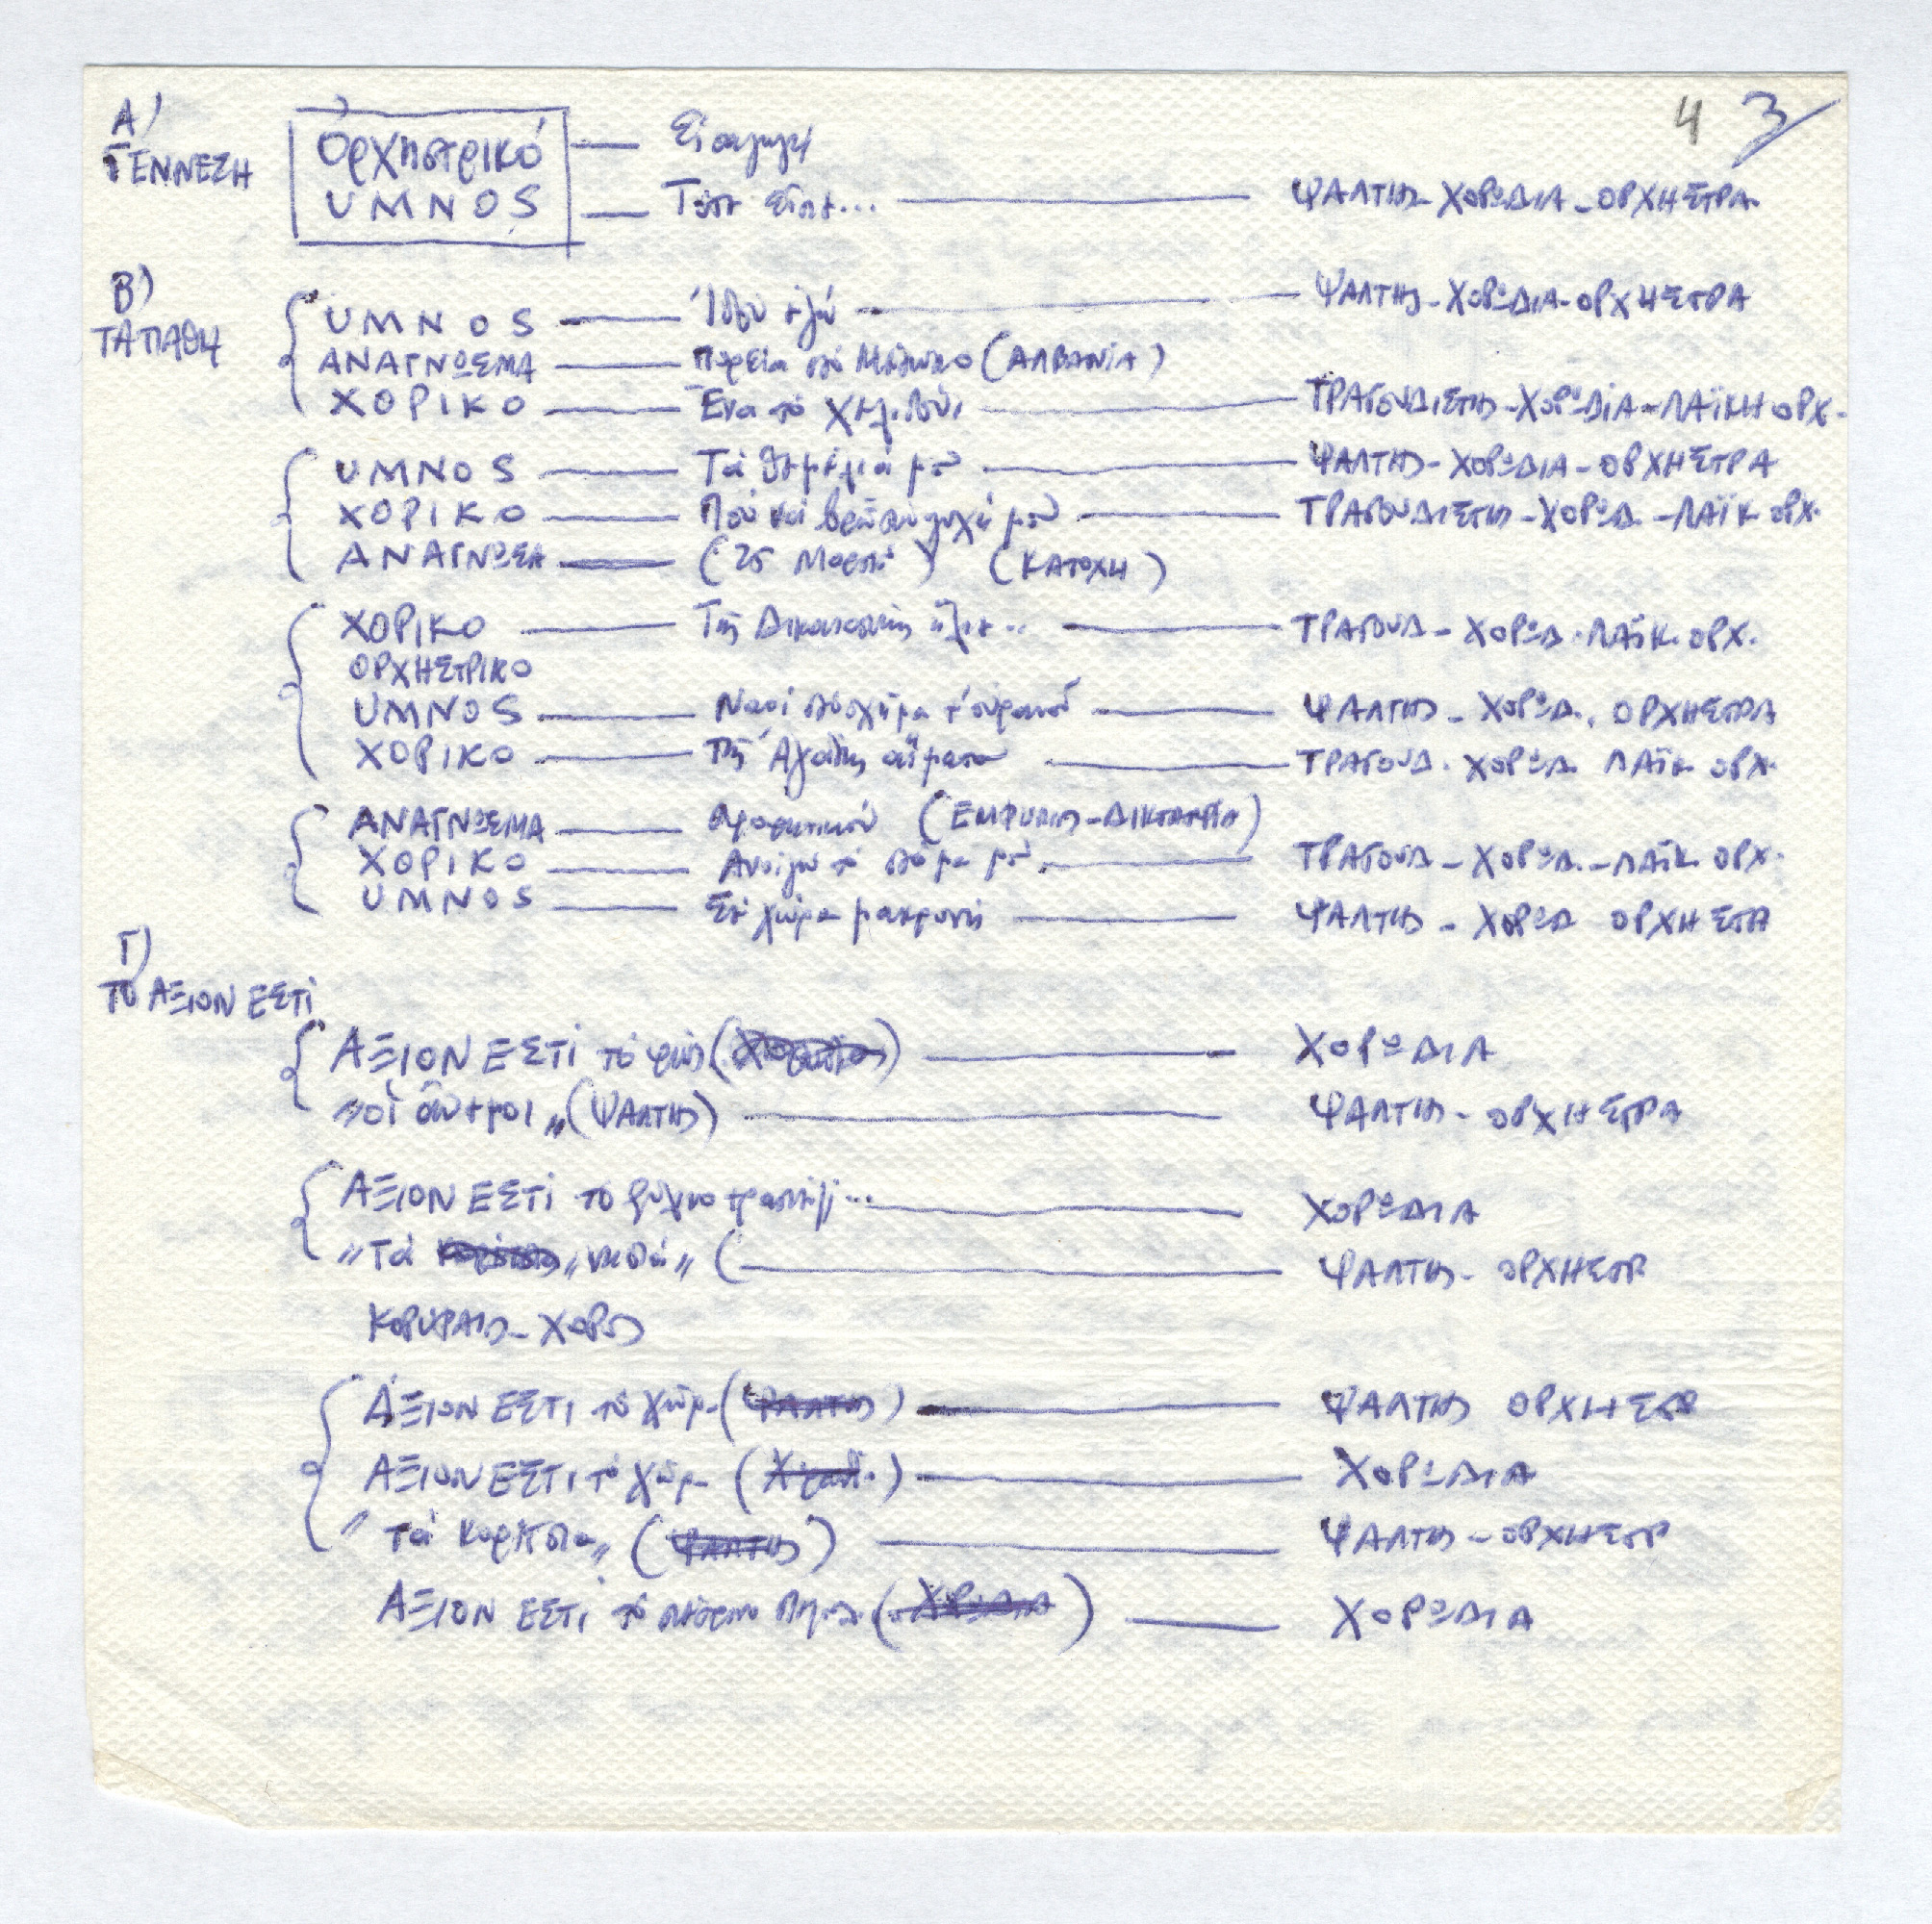 4 3
Α)
ΓΕΝΝΕΣΗ
Ὀρχηστρικό — Εἰσαγωγή
UMNOS — Τότε εἶπε... — ΨΑΛΤΗΣ - ΧΟΡΩΔΙΑ - ΟΡΧΗΣΤΡΑ
Β)
ΤΑ ΠΑΘΗ
UMNOS — Ἰδού ἐγώ — ΨΑΛΤΗΣ - ΧΟΡΩΔΙΑ - ΟΡΧΗΣΤΡΑ
ΑΝΑΓΝΩΣΜΑ — Πορεία στό Μέτωπο (ΑΛΒΑΝΙΑ)
ΧΟΡΙΚΟ — Ἕνα τό Χελιδόνι — ΤΡΑΓΟΥΔΙΣΤΗΣ - ΧΟΡΩΔΙΑ - ΛΑΪΚΗ ΟΡΧ.
UMNOS — Τά θεμέλιά μου — ΨΑΛΤΗΣ - ΧΟΡΩΔΙΑ - ΟΡΧΗΣΤΡΑ
ΧΟΡΙΚΟ — Ποῦ νά βρῶ τήν ψυχή μου — ΤΡΑΓΟΥΔΙΣΤΗΣ - ΧΟΡΩΔ. - ΛΑΪΚ ΟΡΧ.
ΑΝΑΓΝΩΣΑ — (25 Μαρτί) (ΚΑΤΟΧΗ)
ΧΟΡΙΚΟ — Τῆς Δικαιοσύνης ἥλιε.. — ΤΡΑΓΟΥΔ - ΧΟΡΩΔ. ΛΑΪΚ. ΟΡΧ.
ΟΡΧΗΣΤΡΙΚΟ
UMNOS — Ναοί στό σχῆμα τ' οὐρανοῦ — ΨΑΛΤΗΣ - ΧΟΡΩΔ. ΟΡΧΗΣΤΡΑ
ΧΟΡΙΚΟ — Τῆς Ἀγάπης αἵματα — ΤΡΑΓΟΥΔ. ΧΟΡΩΔ. ΛΑΪΚ ΟΡΧ.
ΑΝΑΓΝΩΣΜΑ — Προφητικόν (ΕΜΦΥΛΙΟΣ - ΔΙΚΤΑΤΟΡΙΑ)
ΧΟΡΙΚΟ — Ἀνοίγω τό στόμα μου — ΤΡΑΓΟΥΔ - ΧΟΡΩΔ. - ΛΑΪΚ ΟΡΧ.
UMNOS — Σέ χώρα μακρυνή — ΨΑΛΤΗΣ - ΧΟΡΩΔ ΟΡΧΗΣΤΑ
Γ)
ΤΟ ΑΞΙΟΝ ΕΣΤΙ
ΑΞΙΟΝ ΕΣΤΙ τό φῶς () — ΧΟΡΩΔΙΑ
"οἱ ἄνεμοι" (ΨΑΛΤΗΣ) — ΨΑΛΤΗΣ - ΟΡΧΗΣΤΡΑ
ΑΞΙΟΝ ΕΣΤΙ τό ξύλινο τραπέζι... — ΧΟΡΩΔΙΑ
"Τά Κορίτσια "νησιά" ( — ΨΑΛΤΗΣ - ΟΡΧΗΣΤΡ
ΚΟΡΥΦΑΙΟΣ - ΧΟΡΟΣ
ΑΞΙΟΝ ΕΣΤΙ τό χῶμ. (ΨΑΛΤΗΣ) — ΨΑΛΤΗΣ ΟΡΧΗΣΤΡ
ΑΞΙΟΝ ΕΣΤΙ τό χῶμ () — ΧΟΡΩΔΙΑ
"Τά Κορίτσια" (ΨΑΛΤΗΣ) — ΨΑΛΤΗΣ - ΟΡΧΗΣΤΡ
ΑΞΙΟΝ ΕΣΤΙ τό (ΧΟΡΩΔΙΑ) — ΧΟΡΩΔΙΑ